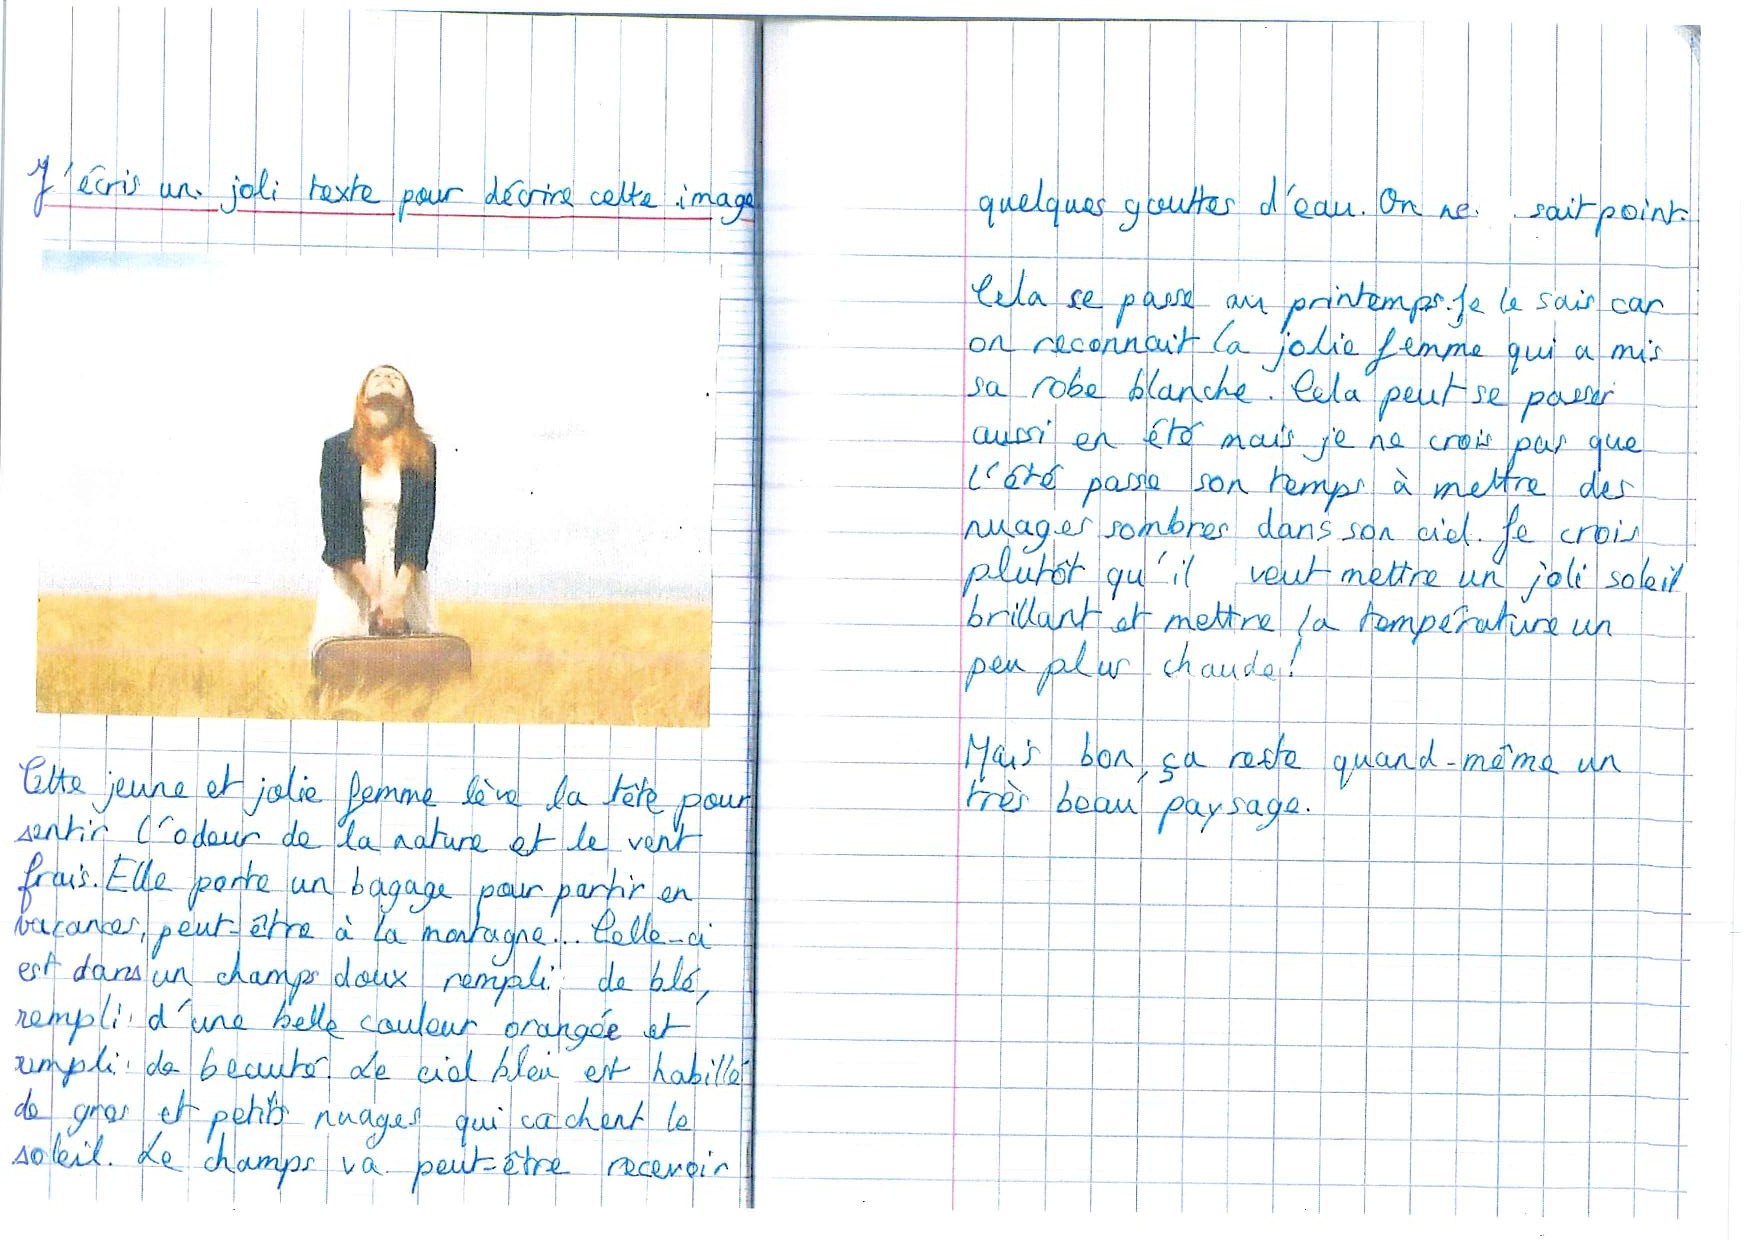 J'écris un joli texte pour décrire cette image
Cette jeune et jolie femme lève la tête pour
sentir l'odeur de la nature et le vent
frais. Elle porte un bagage pour partir en
vacances, peut-être à la montagne... Celle-ci
est dans un champs doux rempli de blé,
rempli d'une belle couleur orangée et
rempli de beauté. Le ciel bleu est habillé
de gros et petits nuages qui cachent le
soleil. Le champs va peut-être recevoir
quelques gouttes d'eau. On ne sait point.
Cela se passe au printemps. Je le sais car
on reconnait la jolie femme qui a mis
sa robe blanche. Cela peut se passer
aussi en été mais je ne crois pas que
l'été passe son temps à mettre des
nuages sombres dans son ciel. Je crois
plutôt qu'il veut mettre un joli soleil
brillant et mettre la température un
peu plus chaude!
Mais bon, ça reste quand-même un
très beau paysage.